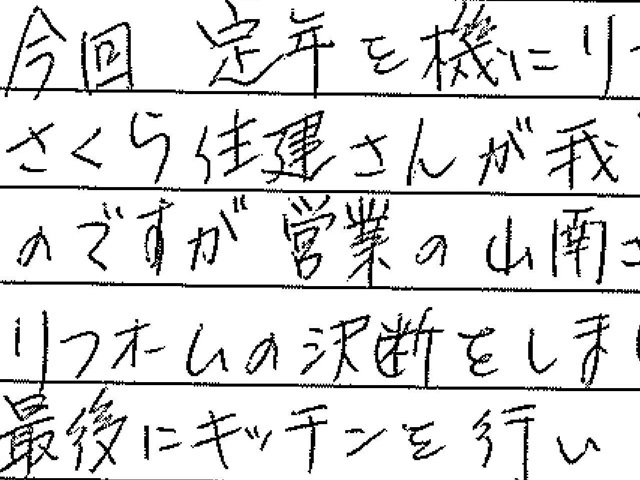 今回 定年を機にリ
さくら住建さんが我
のですが営業の山南さ
リフォームの決断をしま
最後にキッチンを行い